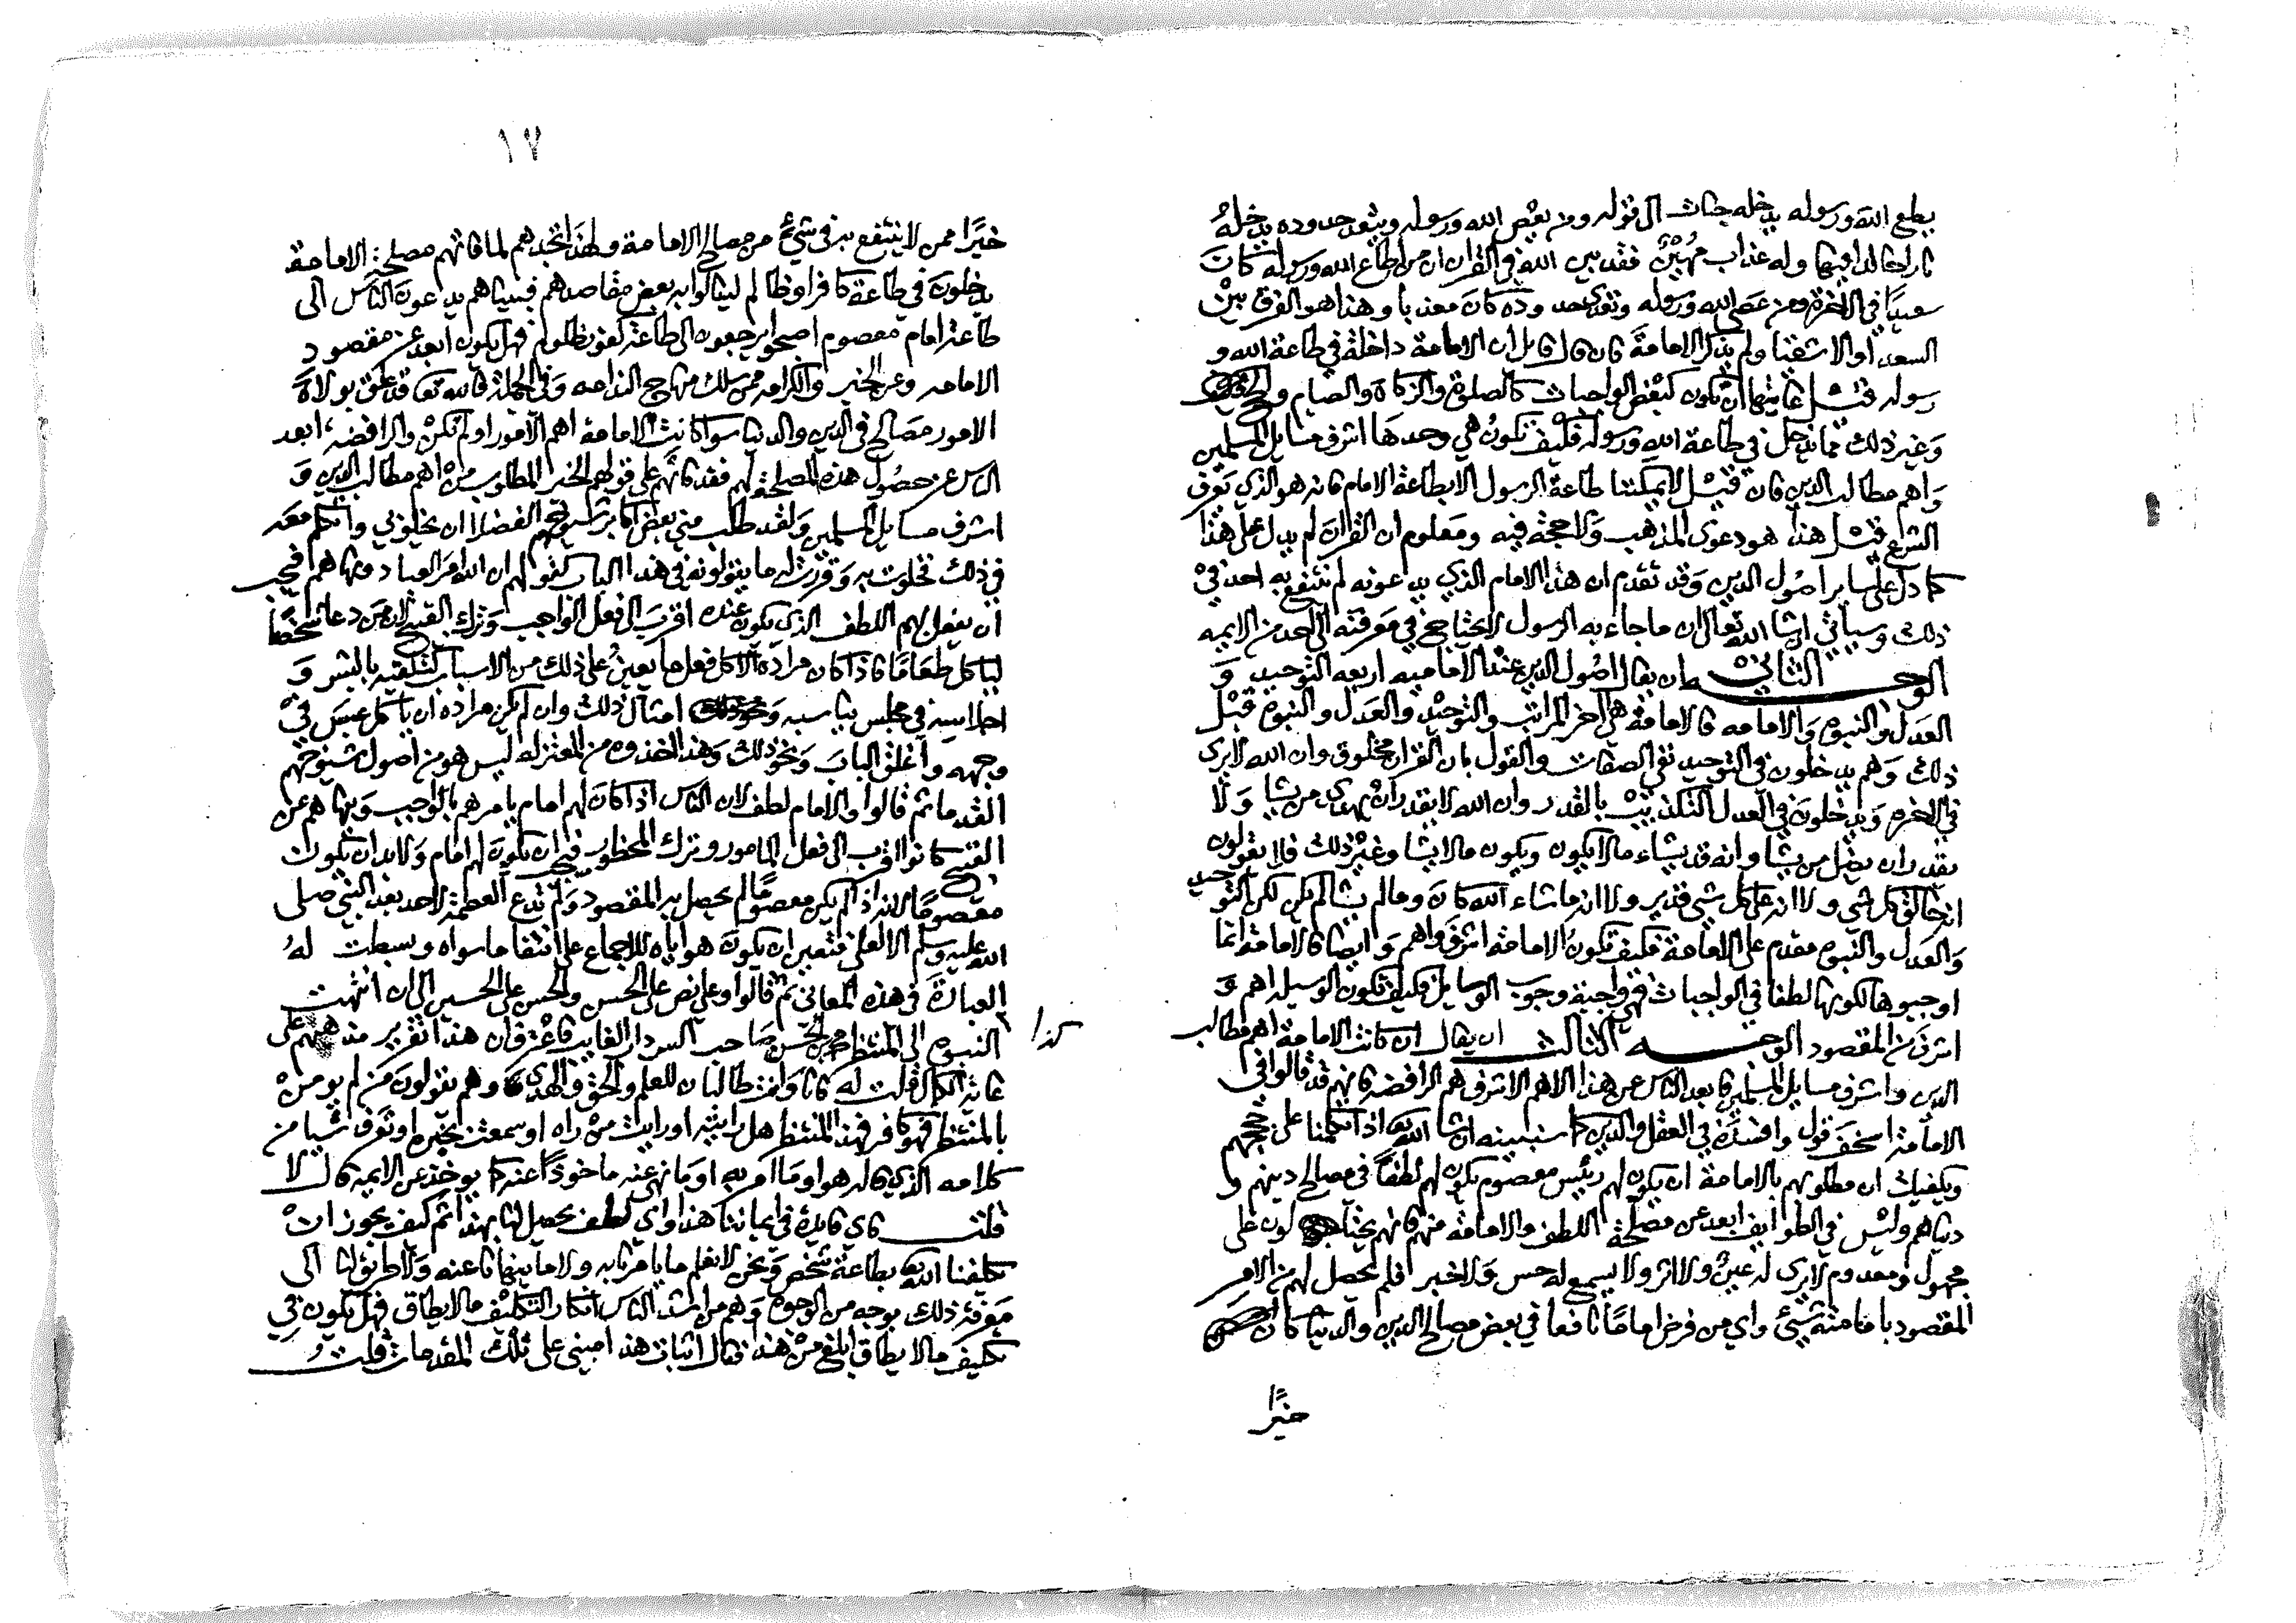 يطع الله ورسوله يدخله جنات الى قوله ومن يعص الله ورسوله ويتعد حدوده يدخله
نارا خالدا فيها وله عذاب مهين فقد بين الله في القران ان من اطاع الله ورسوله كان
سعيدا في الاخرة ومن عصى الله ورسوله وتعدى حدوده كان معذبا وهذا هو الفرق بين
السعداء والاشقيا ولم يذكر الامامة فان قال قايل ان الامامة داخلة في طاعة الله و
رسوله قيل غايتها ان تكون كبعض الواجبات كالصلوة والزكاة والصيام والحج
وغير ذلك مما يدخل في طاعة الله ورسوله فكيف تكون هي وحدها اشرف مسايل المسلمين
واهم مطالب الدين فان قيل لا يمكننا طاعة الرسول الا بطاعة الامام فانه هو الذي يعرف
الشرع قيل هذا هو دعوى المذهب ولا حجة فيه ومعلوم ان القران لم يدل على هذا
كما دل على ساير اصول الدين وقد تقدم ان هذا الامام الذي يدعونه لم ينتفع به احد في
ذلك وسياتي ان شا الله تعالى ان ما جاء به الرسول لا يحتاج في معرفته الى احد من الايمه
الوجه الثاني ان يقال اصول الدين عند الاماميه اربعه التوحيد و
العدل والنبوه والامامه فالامامة هي اخر المراتب والتوحيد والعدل والنبوه قبل
ذلك وهم يدخلون في التوحيد نفي الصفات والقول بان القران مخلوق وان الله لا يرى
في الاخره ويدخلون في العدل التكذيب بالقدر وان الله لا يقدر ان يهدى من يشا ولا
يقدر ان يضل من يشا وانه قد يشاء ما لا يكون ويكون ما لا يشا وغير ذلك فلا يقولون
انه خالق كل شي ولا انه على كل شي قدير ولا انه ما شاء الله كان وما لم يشا لم يكن لكن التوحيد
والعدل والنبوه مقدم على الامامة فكيف تكون الامامة اشرف واهم وايضا فالامامة انما
اوجبوها لكونها لطفا في الواجبات فهي واجبة وجوب الوسايل فكيف تكون الوسيله اهم و
اشرف من المقصود الوجه الثالث ان يقال ان كانت الامامة اهم مطالب
الدين واشرف مسايل المسلمين فابعد الناس عن هذا الاهم الاشرف هم الرافضه فانهم قد قالوا في
الامامة اسخف قول وافسده في العقل والدين كما سنبينه ان شا الله اذا تكلمنا على حججهم
ويكفيك ان مطلوبهم بالامامة ان يكون لهم رئيس معصوم يكون لهم لطفا في مصالح دينهم و
دنياهم وليس في الطوايف ابعد عن مصلحة اللطف والامامة منهم فانهم يحتالون على
مجهول ومعدوم لا يرى له عين ولا اثر ولا يسمع له حس ولا خبر فلم يحصل لهم من الامر
المقصود بامامته شيئ واي من فرض اماما نافعا في بعض مصالح الدين والدنيا كان
خيرا
١٧
خيرا ممن لا ينتفع به في شيئ من مصالح الامامة ولهذا تجدهم لما فاتهم مصلحة الامامة
يدخلون في طاعة كافر او ظالم لينالوا به بعض مقاصدهم فبينا هم يدعون الناس الى
طاعة امام معصوم اصبحوا يرجعون الى طاعة كفور ظلوم فهل يكون ابعد عن مقصود
الامامه وعن الخير والكرامه ممن سلك منهاج الندامه وفي الجملة فالله تعا قد علق بولاة
الامور مصالح في الدين والدنيا سوا كانت الامامة اهم الامور او لم تكن والرافضه ابعد
الناس عن حصول هذه المصلحة لهم فقد فاتهم على قولهم الخير المطلوب من اهم مطالب الدين و
اشرف مسايل المسلمين ولقد طلب مني بعض اكابر شيوخهم الفضلا ان يخلو بي واتكلم معه
في ذلك فخلوت به وقررت له ما يقولونه في هذا الباب كقولهم ان الله امر العباد ونهاهم فيجب
ان يفعل بهم اللطف الذي يكون عنده اقرب الى فعل الواجب وترك القبيح لان من دعا شخصا
لياكل طعاما فاذا كان مراده الاكل فعل ما يعين على ذلك من الاسباب كتلقيه بالبشر و
اجلاسه في مجلس يناسبه وامثال ذلك وان لم يكن مراده ان ياكل عبس في
وجهه واغلق الباب ونحو ذلك وهذا اخذوه من المعتزله ليس هو من اصول شيوخهم
القدما ثم قالوا والامام لطف لان الناس اذا كان لهم امام يامرهم بالواجب وينهاهم عن
القبيح كانوا اقرب الى فعل المامور وترك المحظور فيجب ان يكون لهم امام ولا بد ان يكون
معصوما لانه اذا لم يكن معصوما لم يحصل به المقصود ولم تدع العصمة لاحد بعد النبي صلى
الله عليه وسلم الا لعلي فتعين ان يكون هو اياه للاجماع على انتفا ما سواه وبسطت له
العبارة في هذه المعاني ثم قالوا وعلي نص على الحسن والحسن على الحسين الى ان انتهت
النبوه الى المنتظر محمد بن الحسن صاحب السرداب الغايب فاعترف ان هذا تقرير مذهبهم على
كذا
غاية الكمال قلت له فانا وانت طالبان للعلم والحق والهدى وهم يقولون من لم يومن
بالمنتظر فهو كافر فهذا المنتظر هل رايته او رايت من راه او سمعت بخبره او تعرف شيا من
كلامه الذي قاله هو او ما امر به او ما نهى عنه ماخوذا عنه كما يوخذ عن الايمة قال لا
قلت فاي فايدة في ايماننا هذا واي لطف يحصل لنا بهذا ثم كيف يجوز ان
يكلفنا الله بطاعة شخص ونحن لا نعلم ما يامرنا به ولا ما ينهانا عنه ولا طريق لنا الى
معرفة ذلك بوجه من الوجوه وهم من اشد الناس انكارا لتكليف ما لا يطاق فهل يكون في
تكليف ما لا يطاق ابلغ من هذا فقال اثبات هذا مبني على تلك المقدمات قلت و